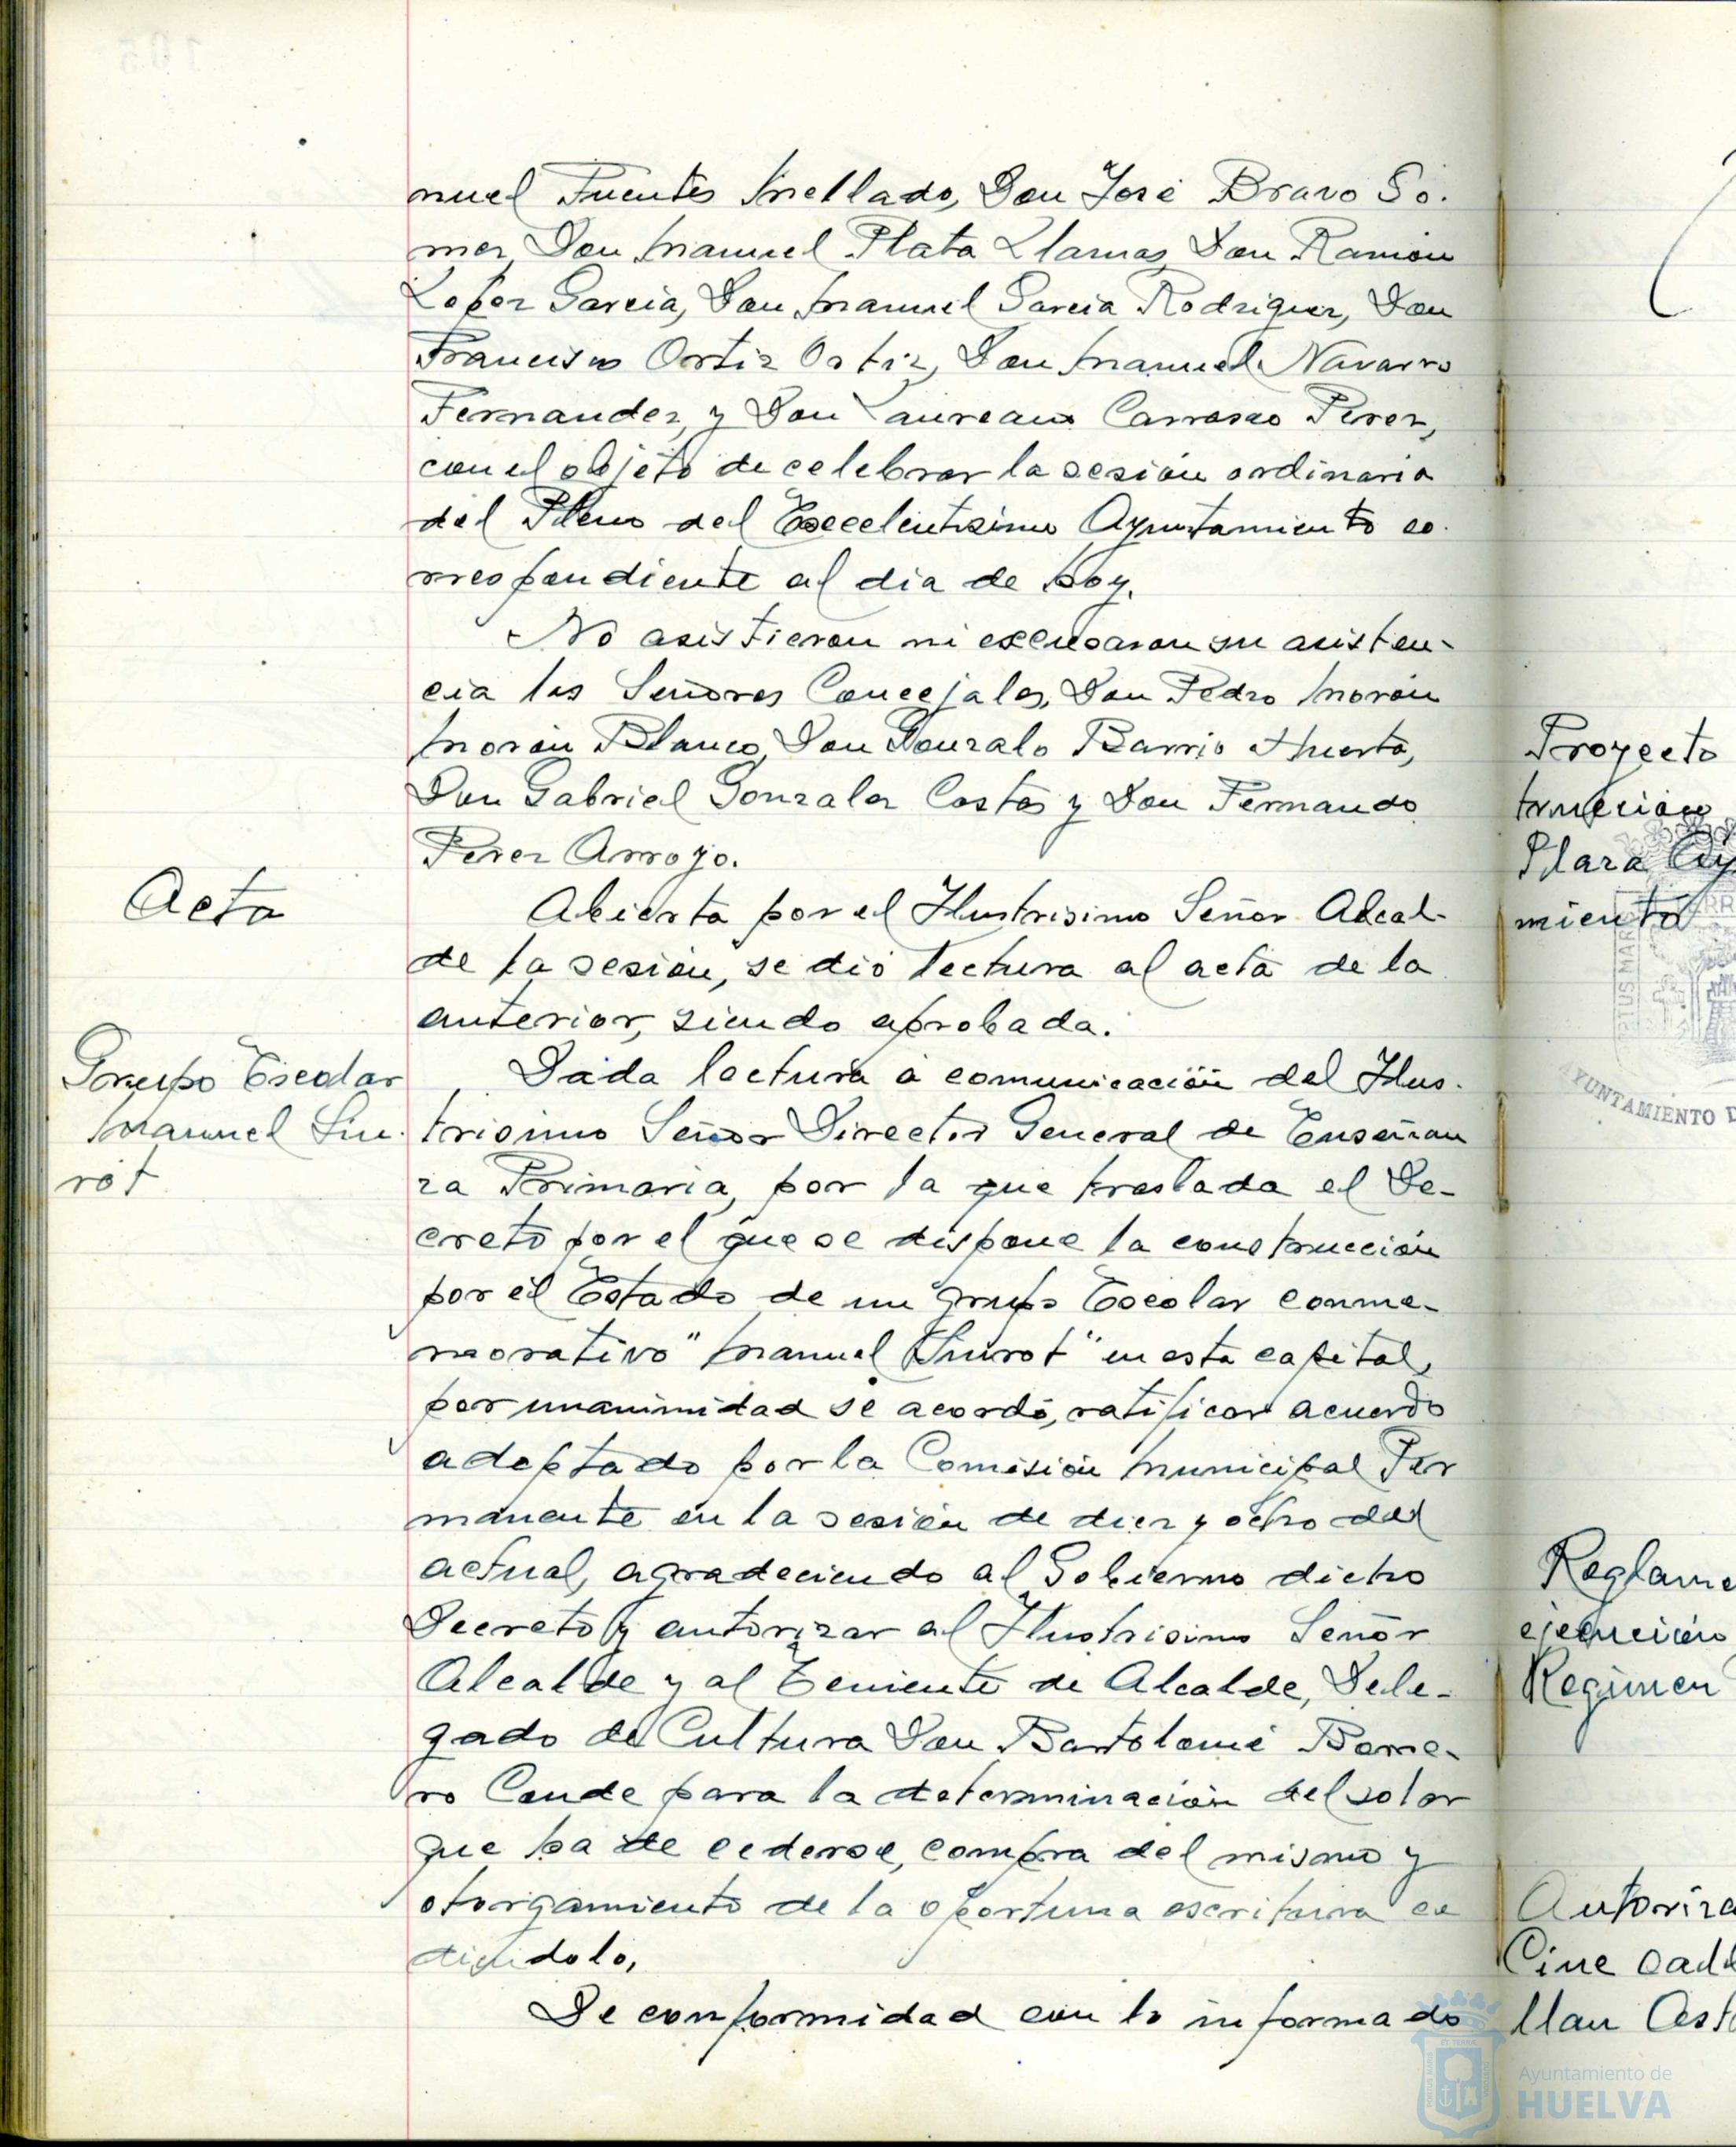 nuel Fuentes Mellado, Don José Bravo Gó.
mez, Don Manuel Plata Llamas, Don Ramón
Lopez Garcia, Don Manuel Garcia Rodriguez, Don
Francisco Ortiz Ortiz, Don Manuel Navarro
Fernandez, y Don Laureano Carrasco Perez,
con el objeto de celebrar la sesión ordinaria
del Pleno del Excelentisimo Ayuntamiento co.
rrespondiente al dia de hoy.
No asistieron ni excusaron su asisten-
cia los Señores Concejales, Don Pedro Morón
Morón Blanco, Don Gonzalo Barrio Huerta,
Don Gabriel Gonzalez Costa y Don Fernando
Perez Arroyo.
Acta
Abierta por el Ilustrisimo Señor Alcal-
de la sesión, se dió lectura al acta de la
anterior, siendo aprobada.
Grupo Escolar
Manuel Siu.
rot
Dada lectura a comunicación del Ilus.
trisimo Señor Director General de Enseñan
za Primaria, por la que traslada el De-
creto por el que se dispone la construcción
por el Estado de un Grupo Escolar conme-
morativo "Manuel Siurot" en esta capital,
por unanimidad se acordó, ratificar acuerdo
adoptado por la Comisión Municipal Per
manente en la sesión de diez y ocho del
actual, agradeciendo al Gobierno dicho
Decreto y autorizar al Ilustrisimo Señor
Alcalde y al Teniente de Alcalde, Dele-
gado de Cultura Don Bartolomé Rome-
ro Conde para la determinación del solar
que ha de cederse, compra del mismo y
otorgamiento de la oportuna escritura ce
diendolo.
De conformidad con lo informado
Proyecto
trucción
Plaza Ay
miento
AYUNTAMIENTO D
Reglame
ejecución
Regimen
Autoriza
Cine
llan Cast
Ayuntamiento de
HUELVA